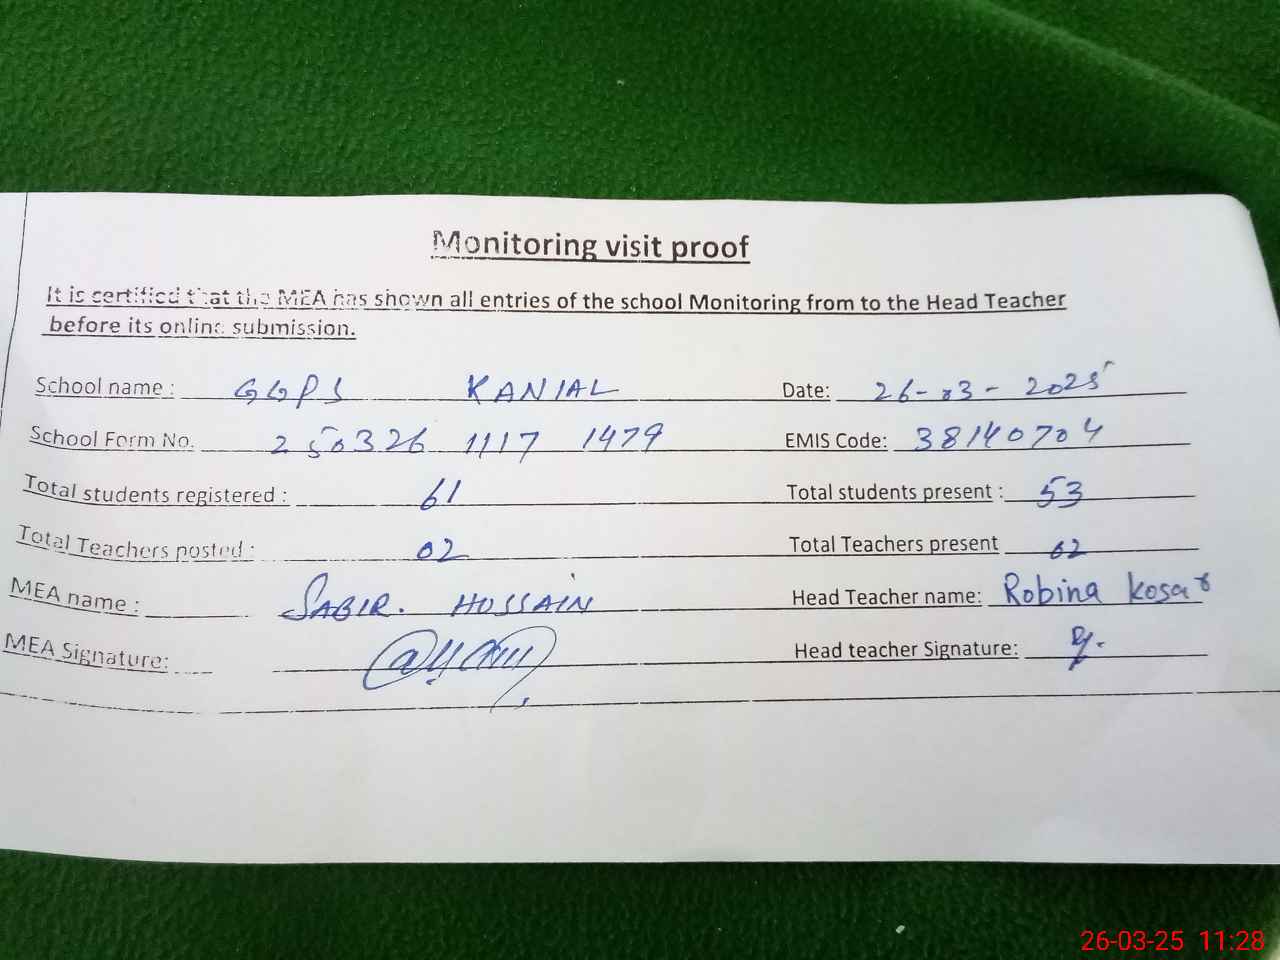 Monitoring visit proof
It is certified that the MEA has shown all entries of the school Monitoring from to the Head Teacher
before its online submission.
School name : GGPS KANIAL Date: 26-03-2025
School Form No. 250326 1117 1479 EMIS Code: 38140704
Total students registered : 61 Total students present : 53
Total Teachers posted : 02 Total Teachers present 02
MEA name : SABIR. HUSSAIN Head Teacher name: Robina Kosar
MEA Signature: Head teacher Signature:
26-03-25 11:28